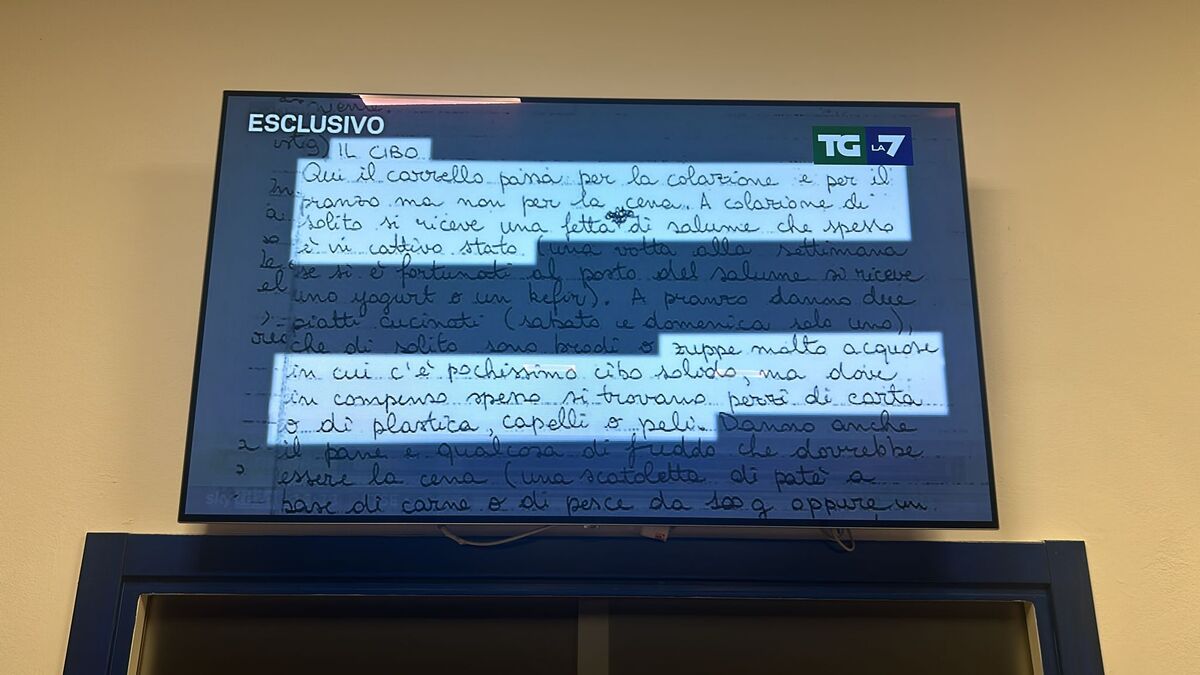 venire.
ESCLUSIVO
TG LA7
IL CIBO
Qui il carrello passa per la colazione e per il
pranzo ma non per la cena. A colazione di
solito si riceve una fetta di salume che spesso
è in cattivo stato (una volta alla settimana
se si è fortunati al posto del salume si riceve
uno yogurt o un kefir). A pranzo danno due
piatti cucinati (sabato e domenica solo uno),
che di solito sono brodi o zuppe molto acquose
in cui c'è pochissimo cibo solido, ma dove
in compenso spesso si trovano pezzi di carta
o di plastica, capelli o peli. Danno anche
il pane e qualcosa di freddo che dovrebbe
essere la cena (una scatoletta di patè a
base di carne o di pesce da 100 g oppure un